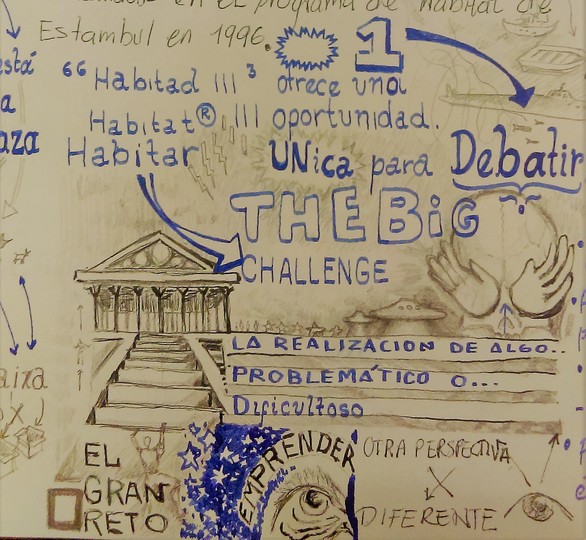 en el programa de habitat de
Estambul en 1996.
1
está
a
aza
“Habitad III ³ ofrece una
Habitat® III oportunidad.
Habitar UNica para Debatir
THE BiG
CHALLENGE
LA REALIZACION DE ALGO..
PROBLEMÁTICO O...
Dificultoso
aixa
EL
GRAN
RETO
EMPRENDER
OTRA PERSPECTIVA
X
DIFERENTE